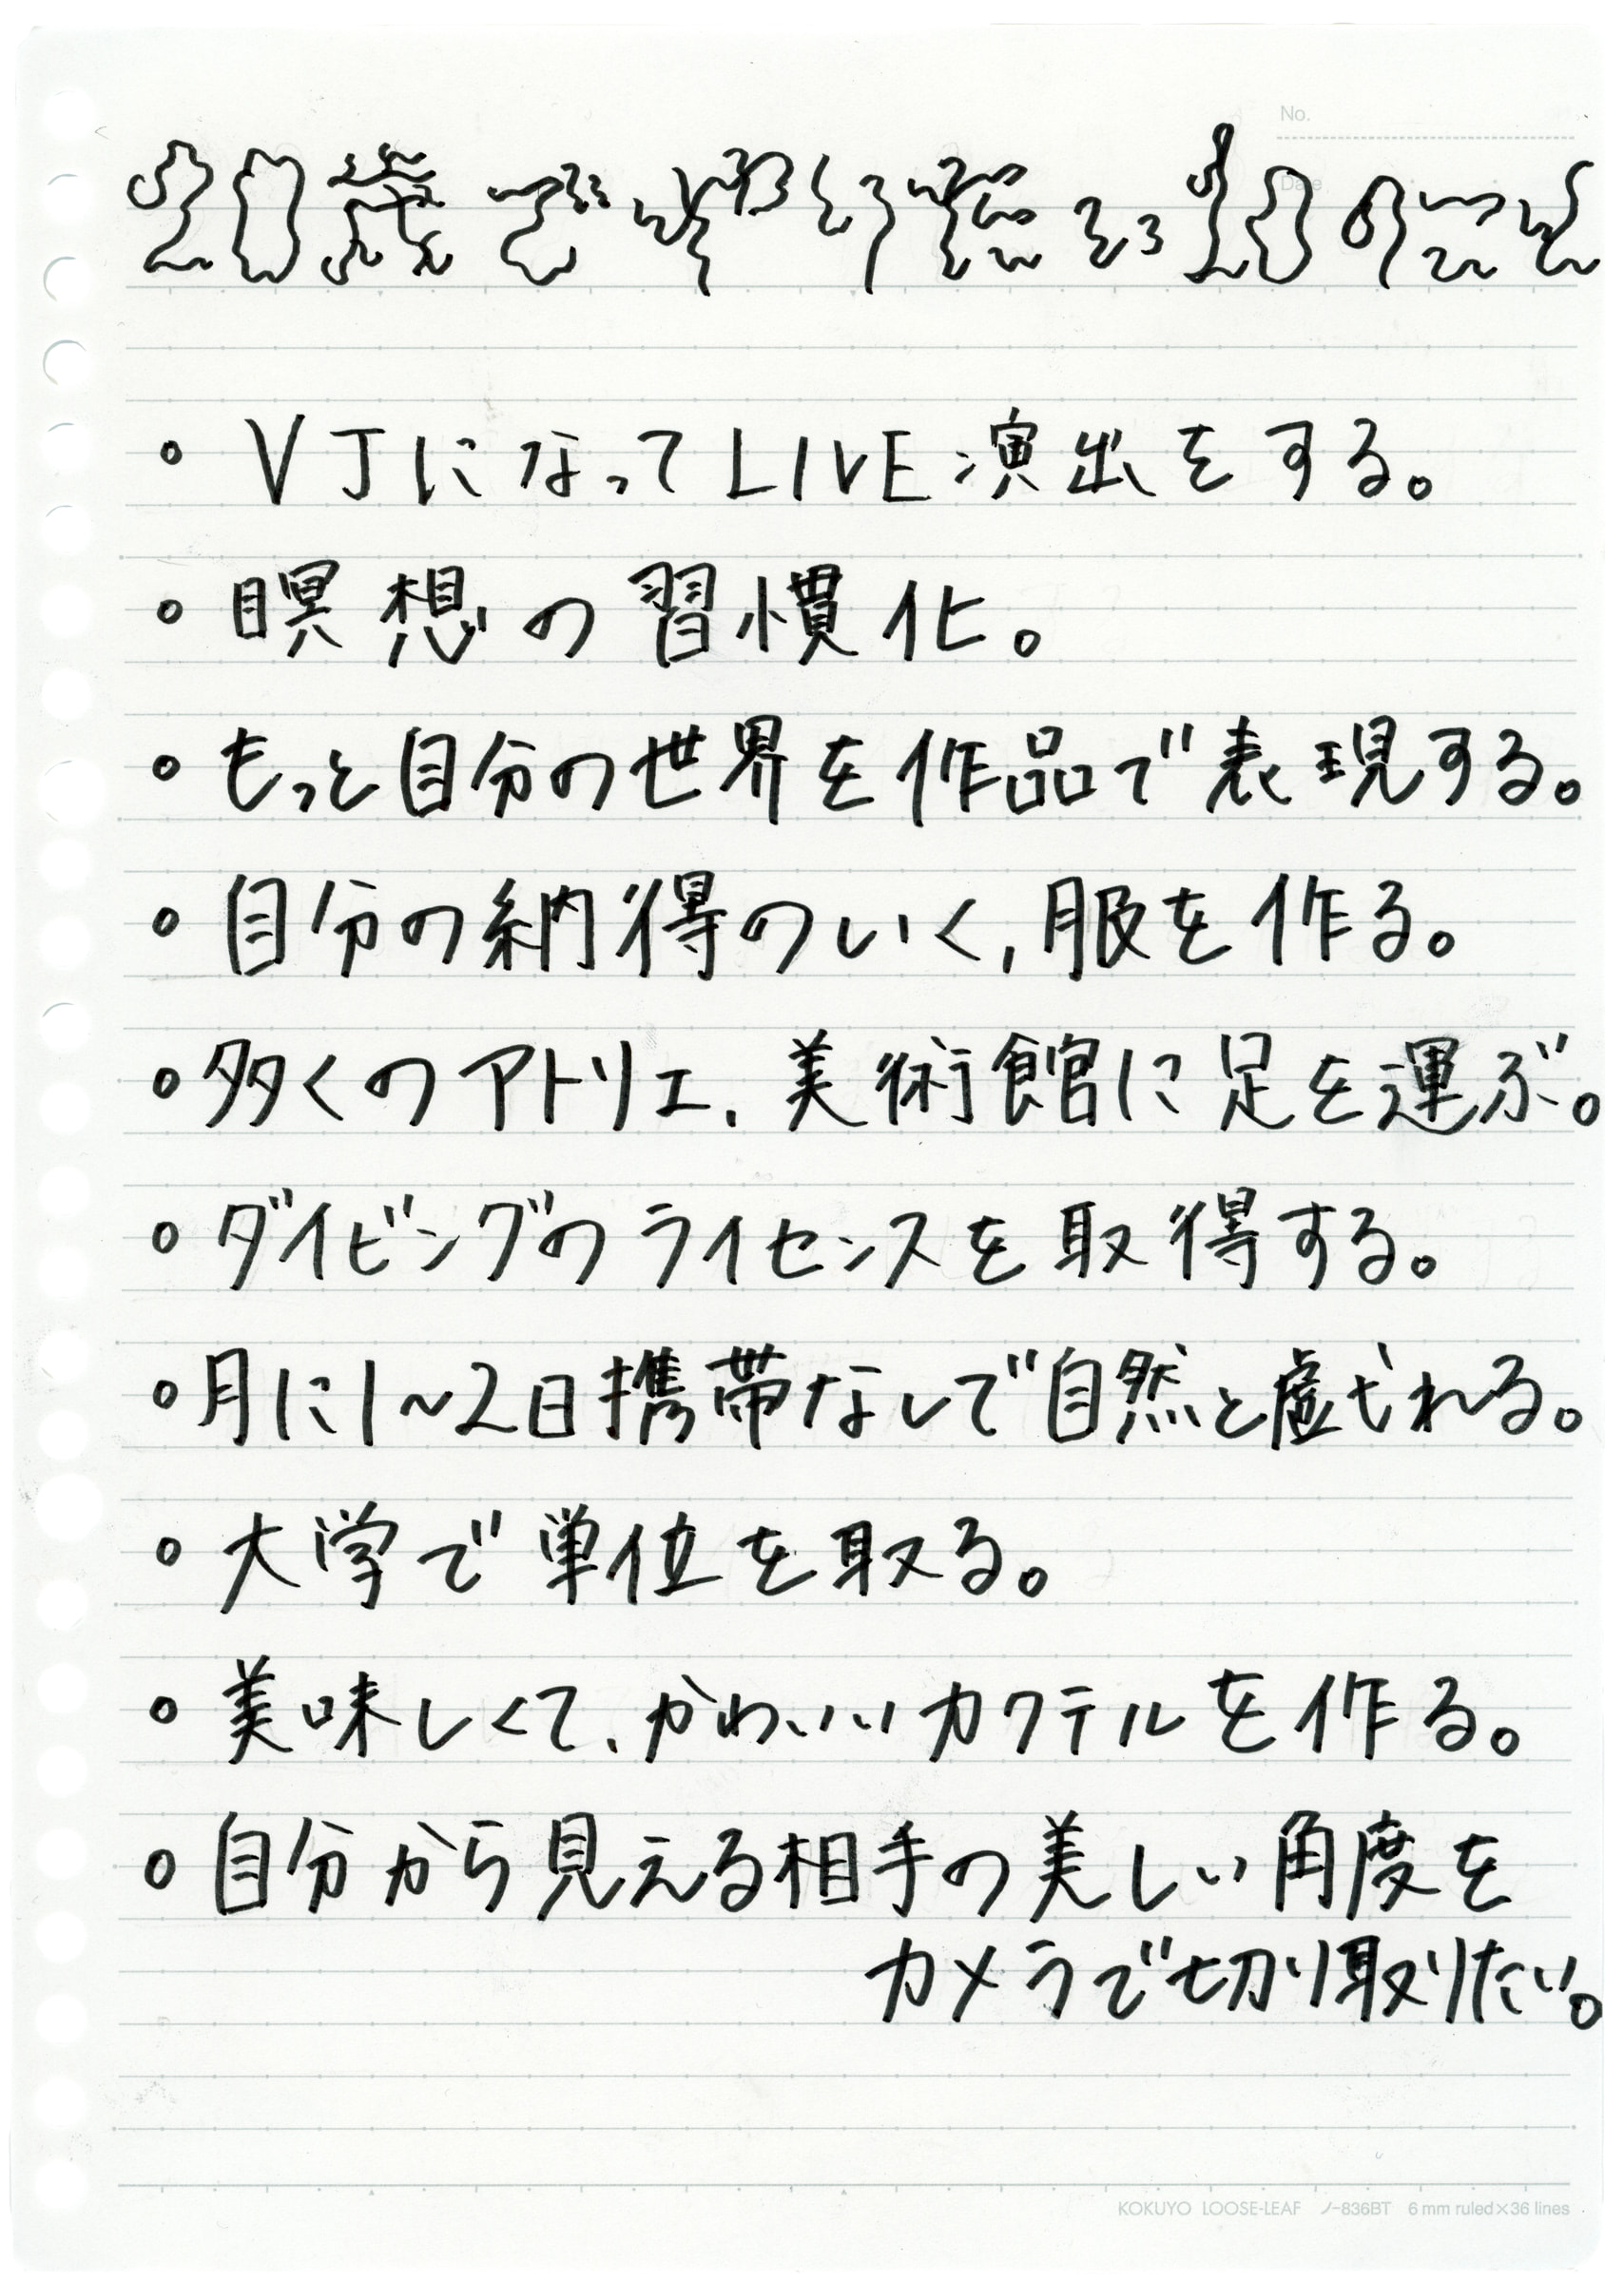 No.
Date
20歳でやりたい10のこと
◦ VJになってLIVE演出をする。
◦ 瞑想の習慣化。
◦ もっと自分の世界を作品で表現する。
◦ 自分の納得のいく,服を作る。
◦ 多くのアトリエ、美術館に足を運ぶ。
◦ ダイビングのライセンスを取得する。
◦ 月に1~2日携帯なしで自然と戯れる。
◦ 大学で単位を取る。
◦ 美味しくて、かわいいカクテルを作る。
◦ 自分から見える相手の美しい角度を
カメラで切り取りたい。
KOKUYO LOOSE-LEAF ノ-836BT 6 mm ruled×36 lines